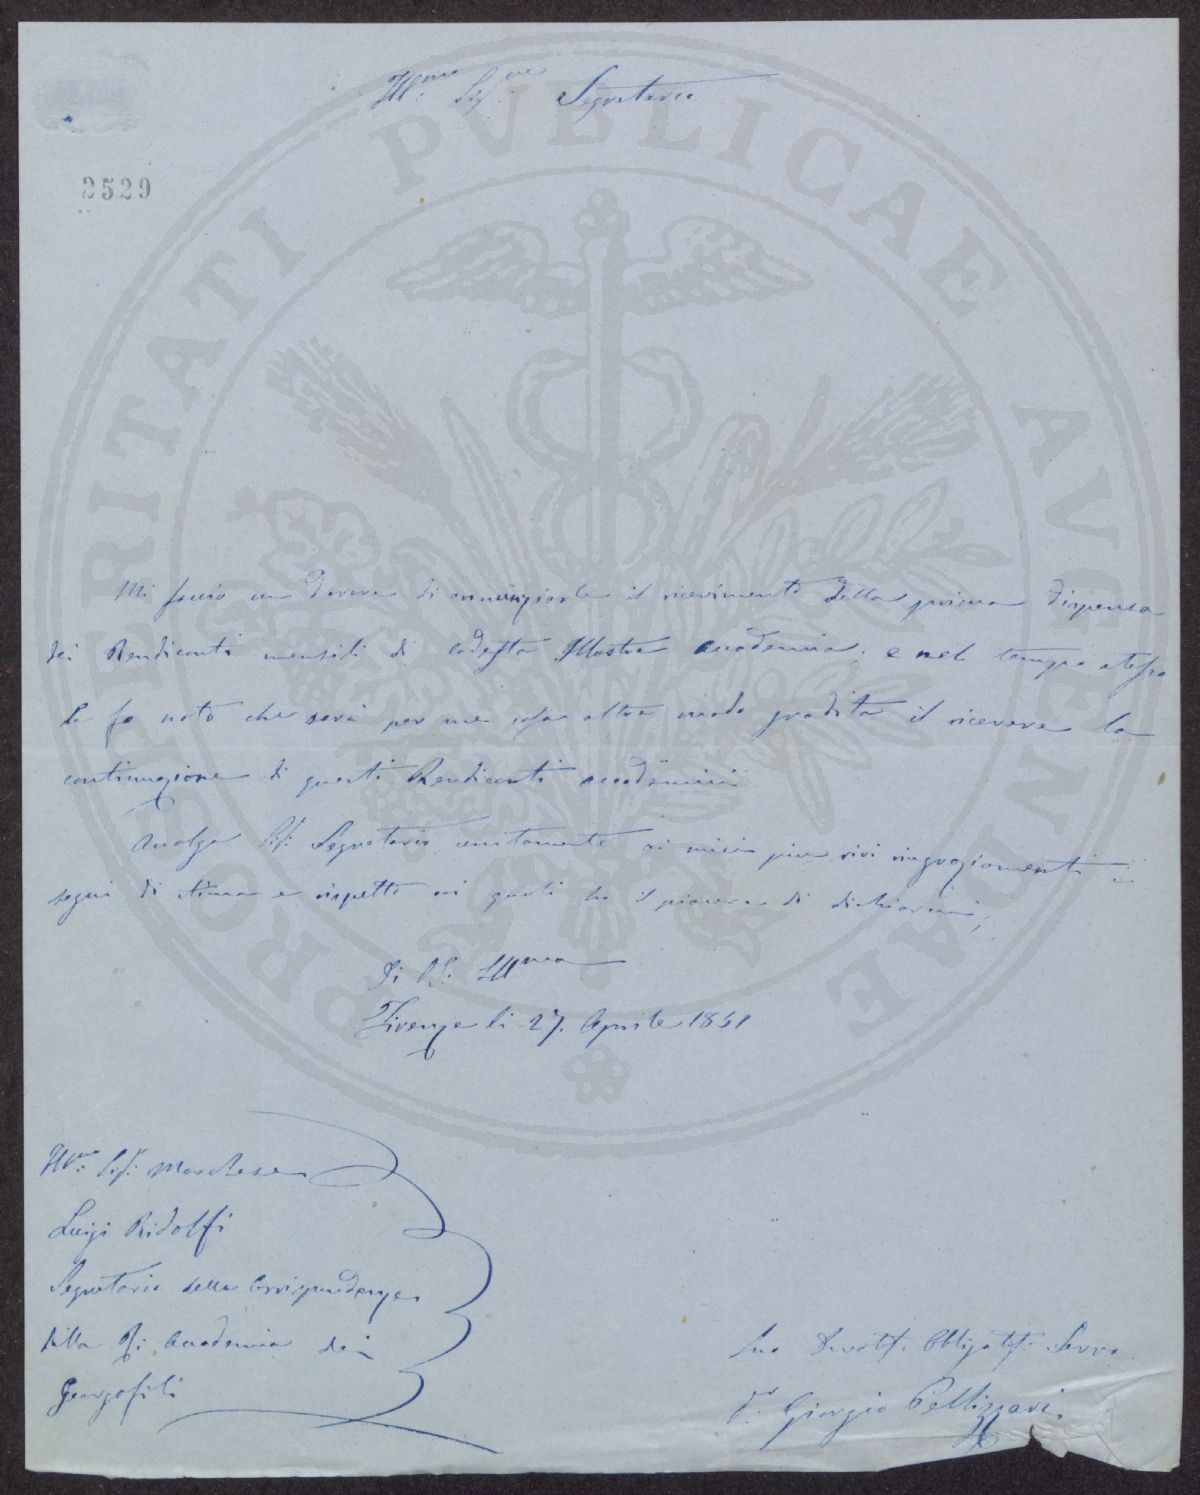 Ill.mo Sig.re Segretario
2529
PROSPERITATI PVBLICAE AVGENDAE
Mi faccio un dovere di annunziarle il ricevimento della prima dispensa
dei Rendiconti mensili di codesta Illustre Accademia; e nel tempo stesso
Le fo noto che sarà per me cosa oltre modo gradita il ricevere la
continuazione di questi Rendiconti accademici
Accolga Sig. Segretario unitamente ai miei più vivi ringraziamenti i
segni di stima e rispetto coi quali ho il piacere di dichiararmi,
Di V.S. Ill.ma
Firenze li 27. Aprile 1851
Ill.mo Sig. Marchese
Luigi Ridolfi
Segretario della Corrispondenza
della R. Accademia dei
Georgofili
Suo Devot. Obbligat. Servo
D.r Giorgio Pellizzari